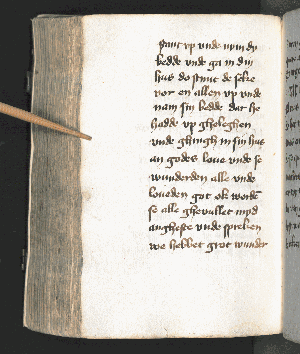 stant vp vnde nym dy
bedde vnde ga in din
hus do stunt de seke
vor en allen vp vnde
nam sin bedde dar he
hadde vp gheleghen
vnde ghingh in sin hus
an godes loue vnde se
wunderden alle vnde
loueden got ok worde
se alle gheuullet myd
angheste vnde spreken
we hebbet grot wunder